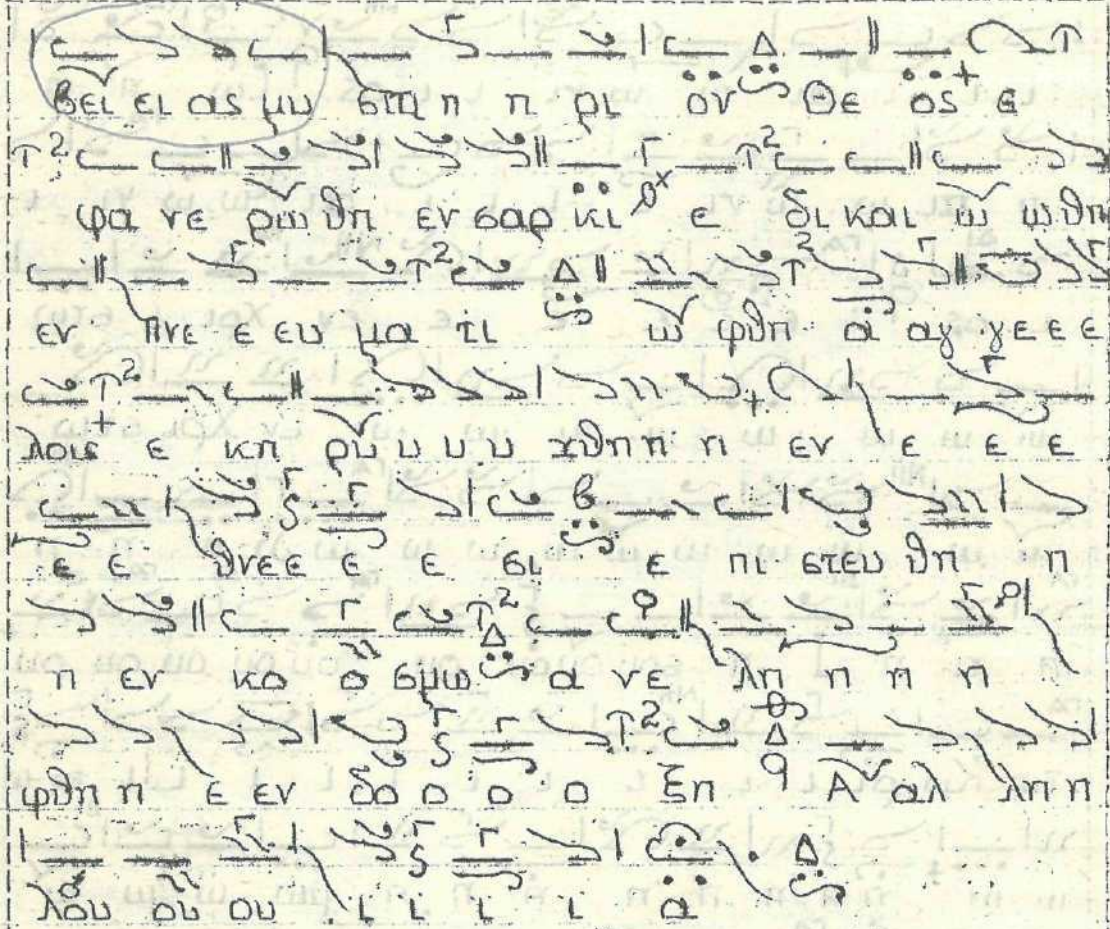 βει ει ας μυ στη η η ρι ον Θε ος ε
φα νε ρω θη εν σαρ κι ε δι και ω ω θη
εν πνε ε ευ μα τι ω φθη α αγ γε ε ε
λοις ε κη ρυ υ υ υ χθη η η εν ε ε ε
ε ε θνε ε ε ε σι ε πι στευ θη η
η εν κο ο σμω α νε λη η η η
φθη η ε εν δο ο ο ο ξη Α αλ λη η
λου ου ου ι ι ι ι α